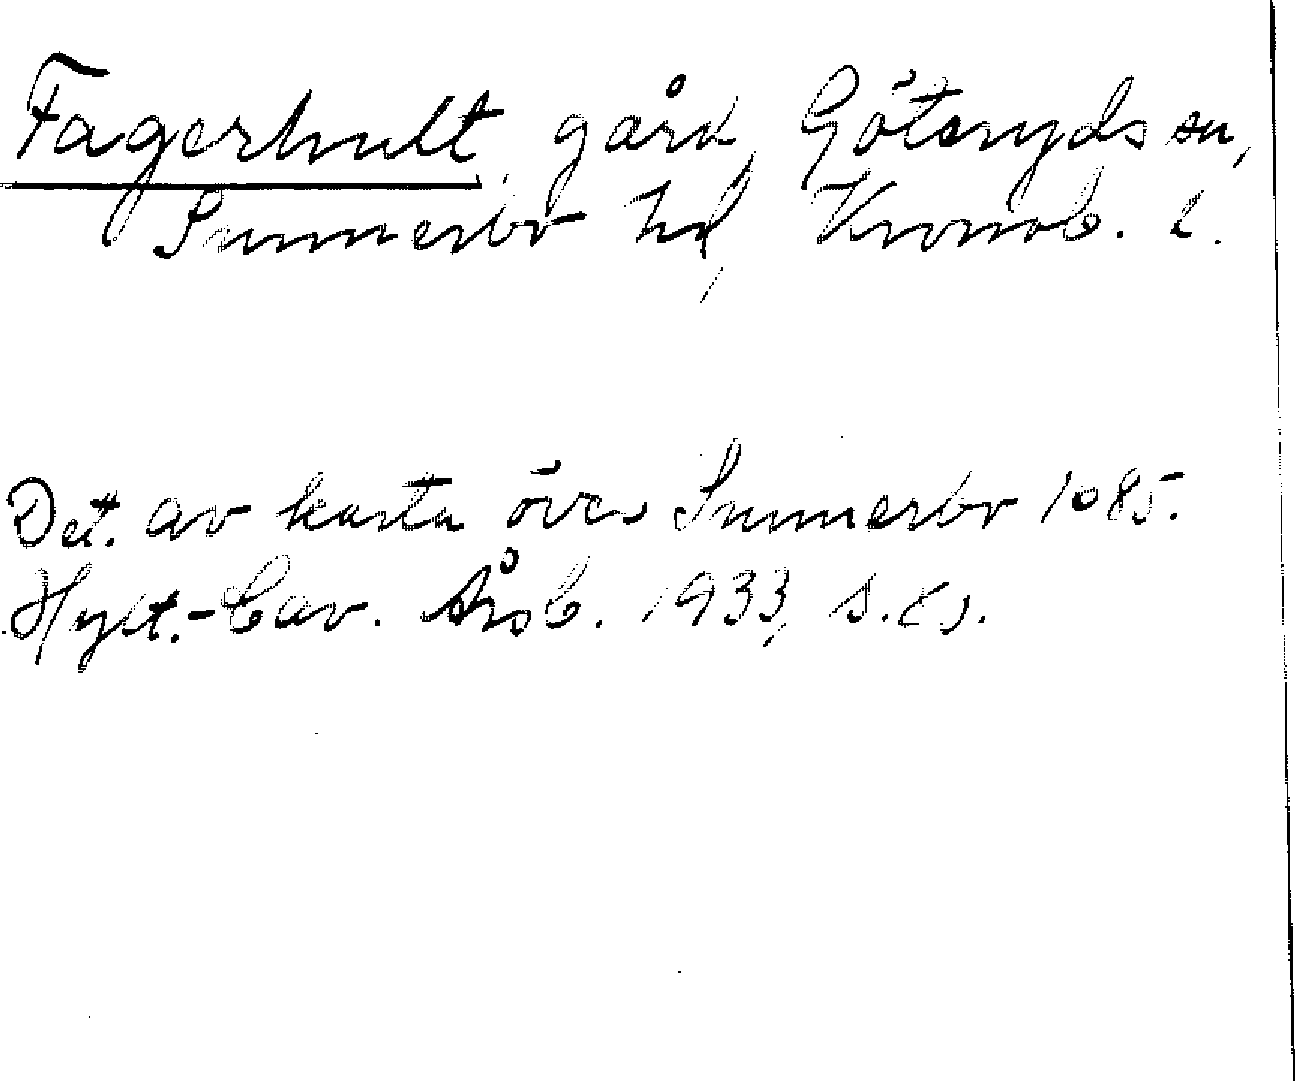 Fagerhult, gård, Göteryds sn,
Sunnerbo hd, Kronob. l.
Det. av karta över Sunnerbo 1685.
Hylt.-Cav. Årsb. 1933, s.